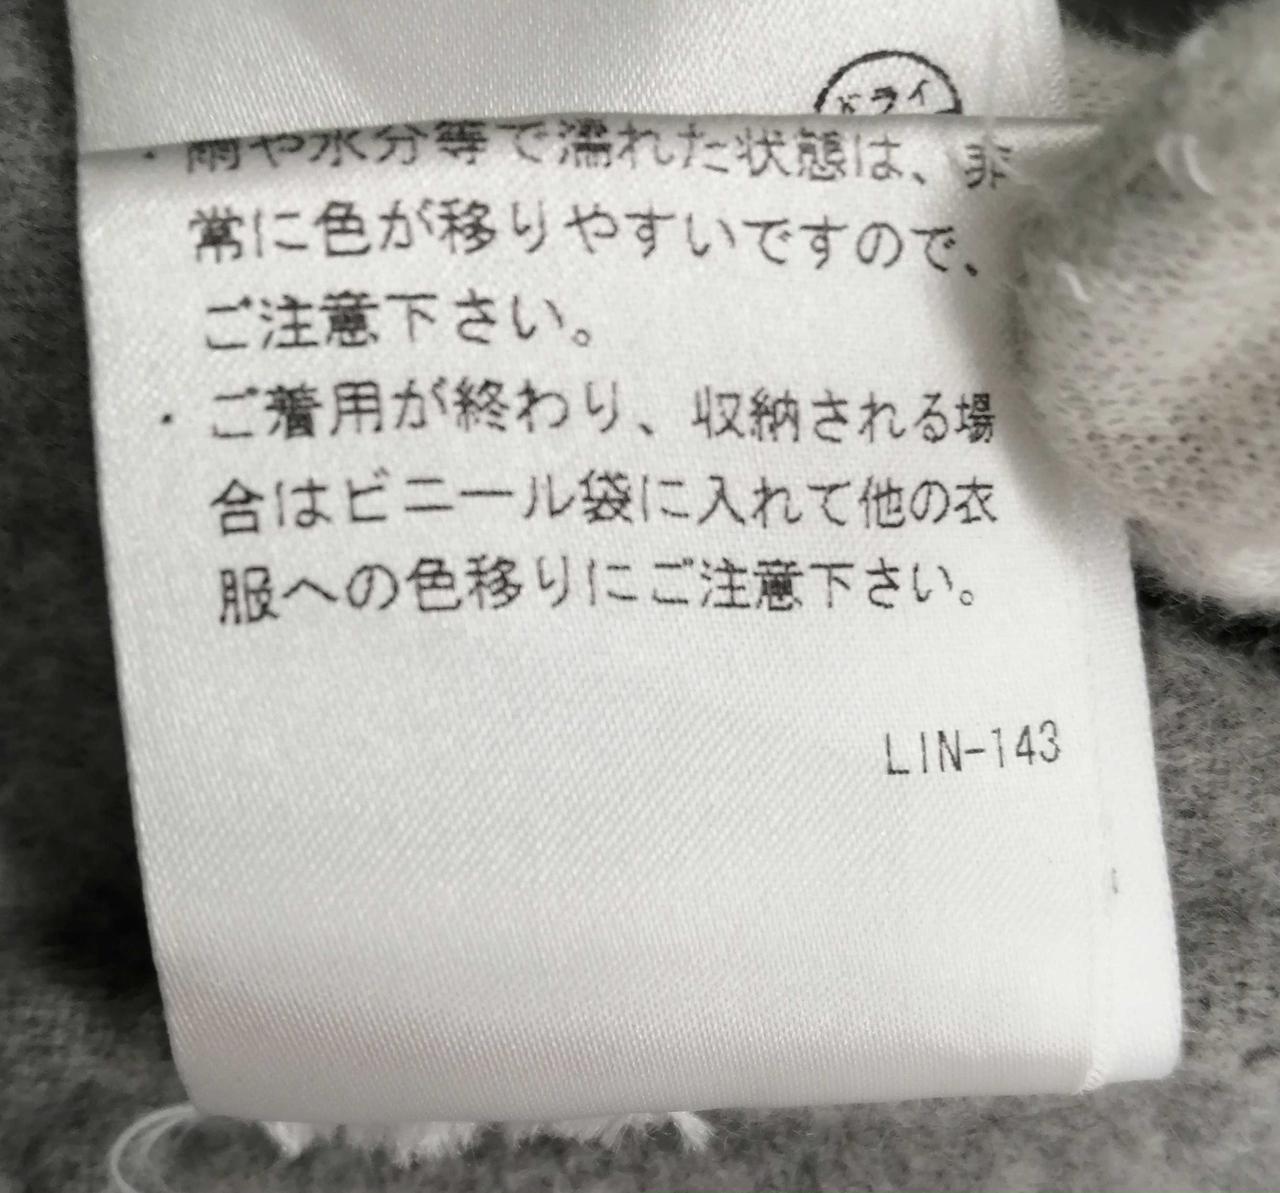 ドライ
・雨や水分等で濡れた状態は、非
常に色が移りやすいですので、
ご注意下さい。
・ご着用が終わり、収納される場
合はビニール袋に入れて他の衣
服への色移りにご注意下さい。
LIN-143